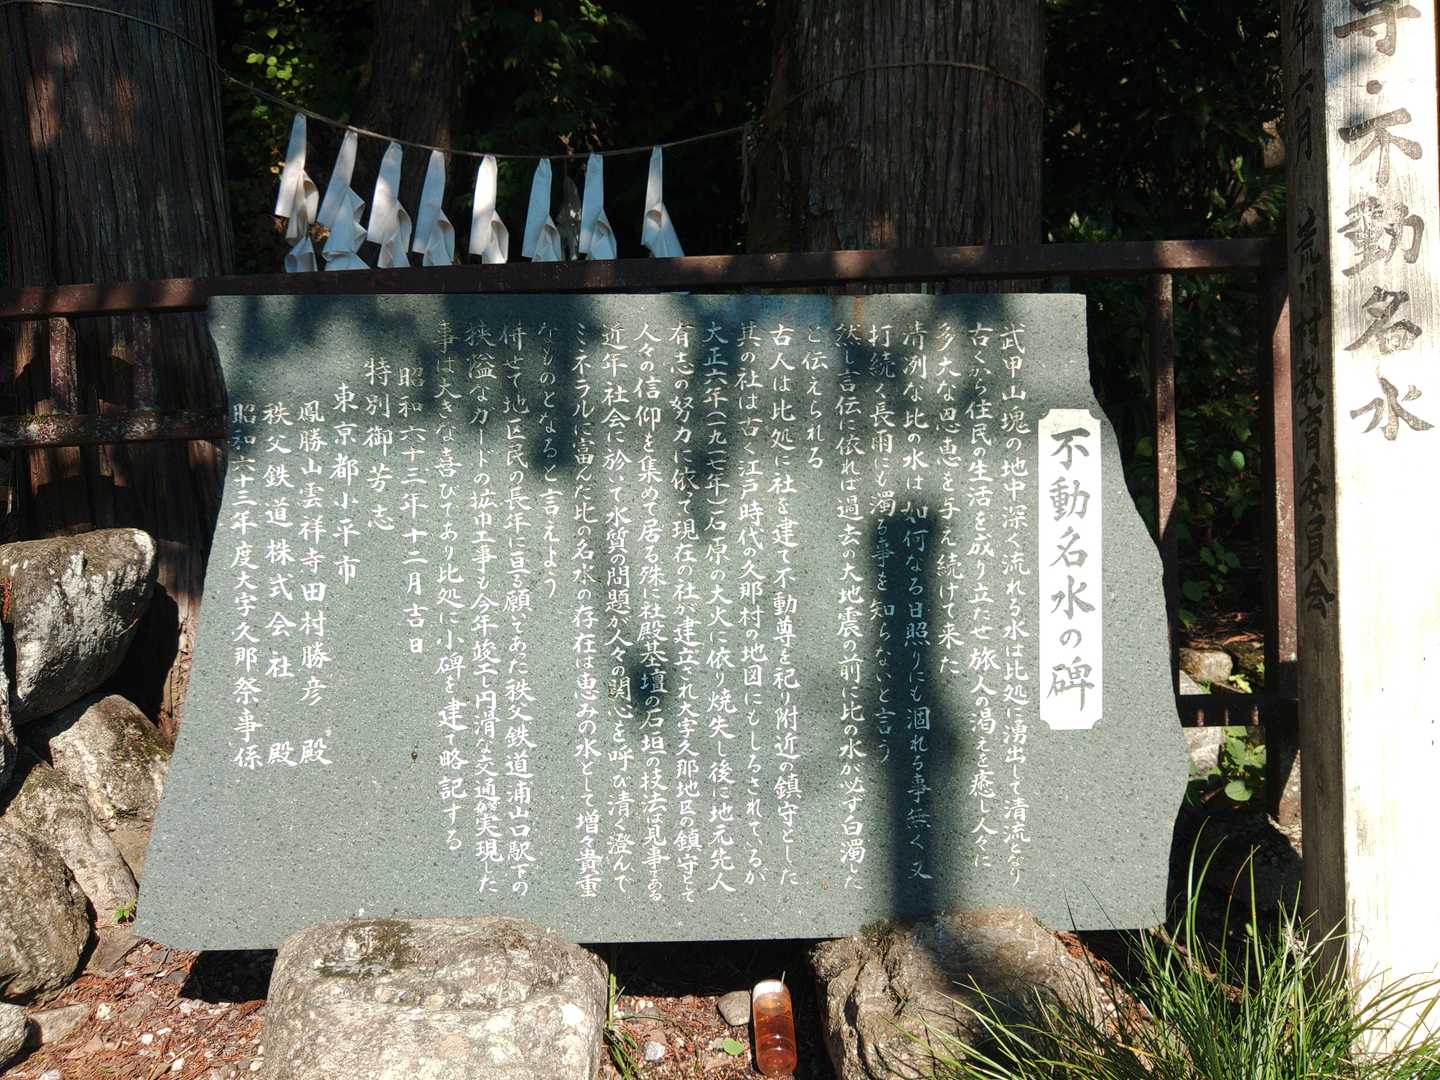 不動名水の碑
武甲山塊の地中深く流れる水は比処に湧出して清流となり
古くから住民の生活を成り立たせ旅人の渇えを癒し人々に
多大な恩恵を与え続けて来た
清冽な比の水は如何なる日照りにも涸れる事無く又
打続く長雨にも濁る事を知らないと言う
然し言伝に依れば過去の大地震の前に比の水が必ず白濁した
と伝えられる
古人は比処に社を建て不動尊を祀り附近の鎮守とした
其の社は古く江戸時代の久那村の地図にもしるされているが
大正六年(一九一七年)石原の大火に依り焼失し後に地元先人
有志の努力に依って現在の社が建立され大字久那地区の鎮守として
人々の信仰を集めて居る殊に社殿基壇の石垣の技法は見事である
近年社会に於いて水質の問題が人々の関心を呼び清く澄んで
ミネラルに富んだ比の名水の存在は恵みの水として増々貴重
なものとなると言えよう
併せて地区民の長年に亘る願いであった秩父鉄道浦山口駅下の
狭隘なガードの拡巾工事も今年竣工し円滑な交通が実現した
事は大きな喜びであり比処に小碑を建て略記する
昭和六十三年十二月吉日
特別御芳志
東京都小平市
鳳勝山雲祥寺田村勝彦 殿
秩父鉄道株式会社 殿
昭和六十三年度大字久那祭事係
守・不動名水
年六月 荒川村教育委員会